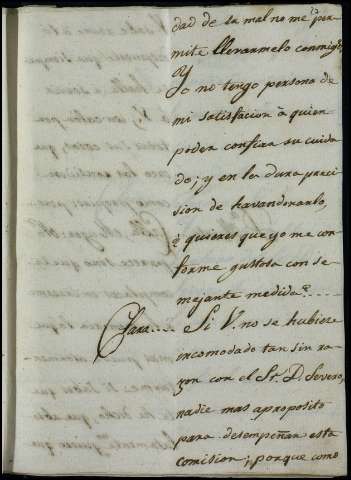 dad de su mal no me per-
mite llevarmelo conmigo,
Yo no tengo persona de
mi satisfacion à quien
poder confiar su cuida
do; y en la dura preci
sion de havandonarlo,
è quieres que yo me con
forme gustosa con se
mejante medida?
Clara.... Si V. no se hubiese
incomodado tan sin ra
zon con el Sr. D. Severo,
nadie mas aproposito
para desempeñar esta
comision; porque como